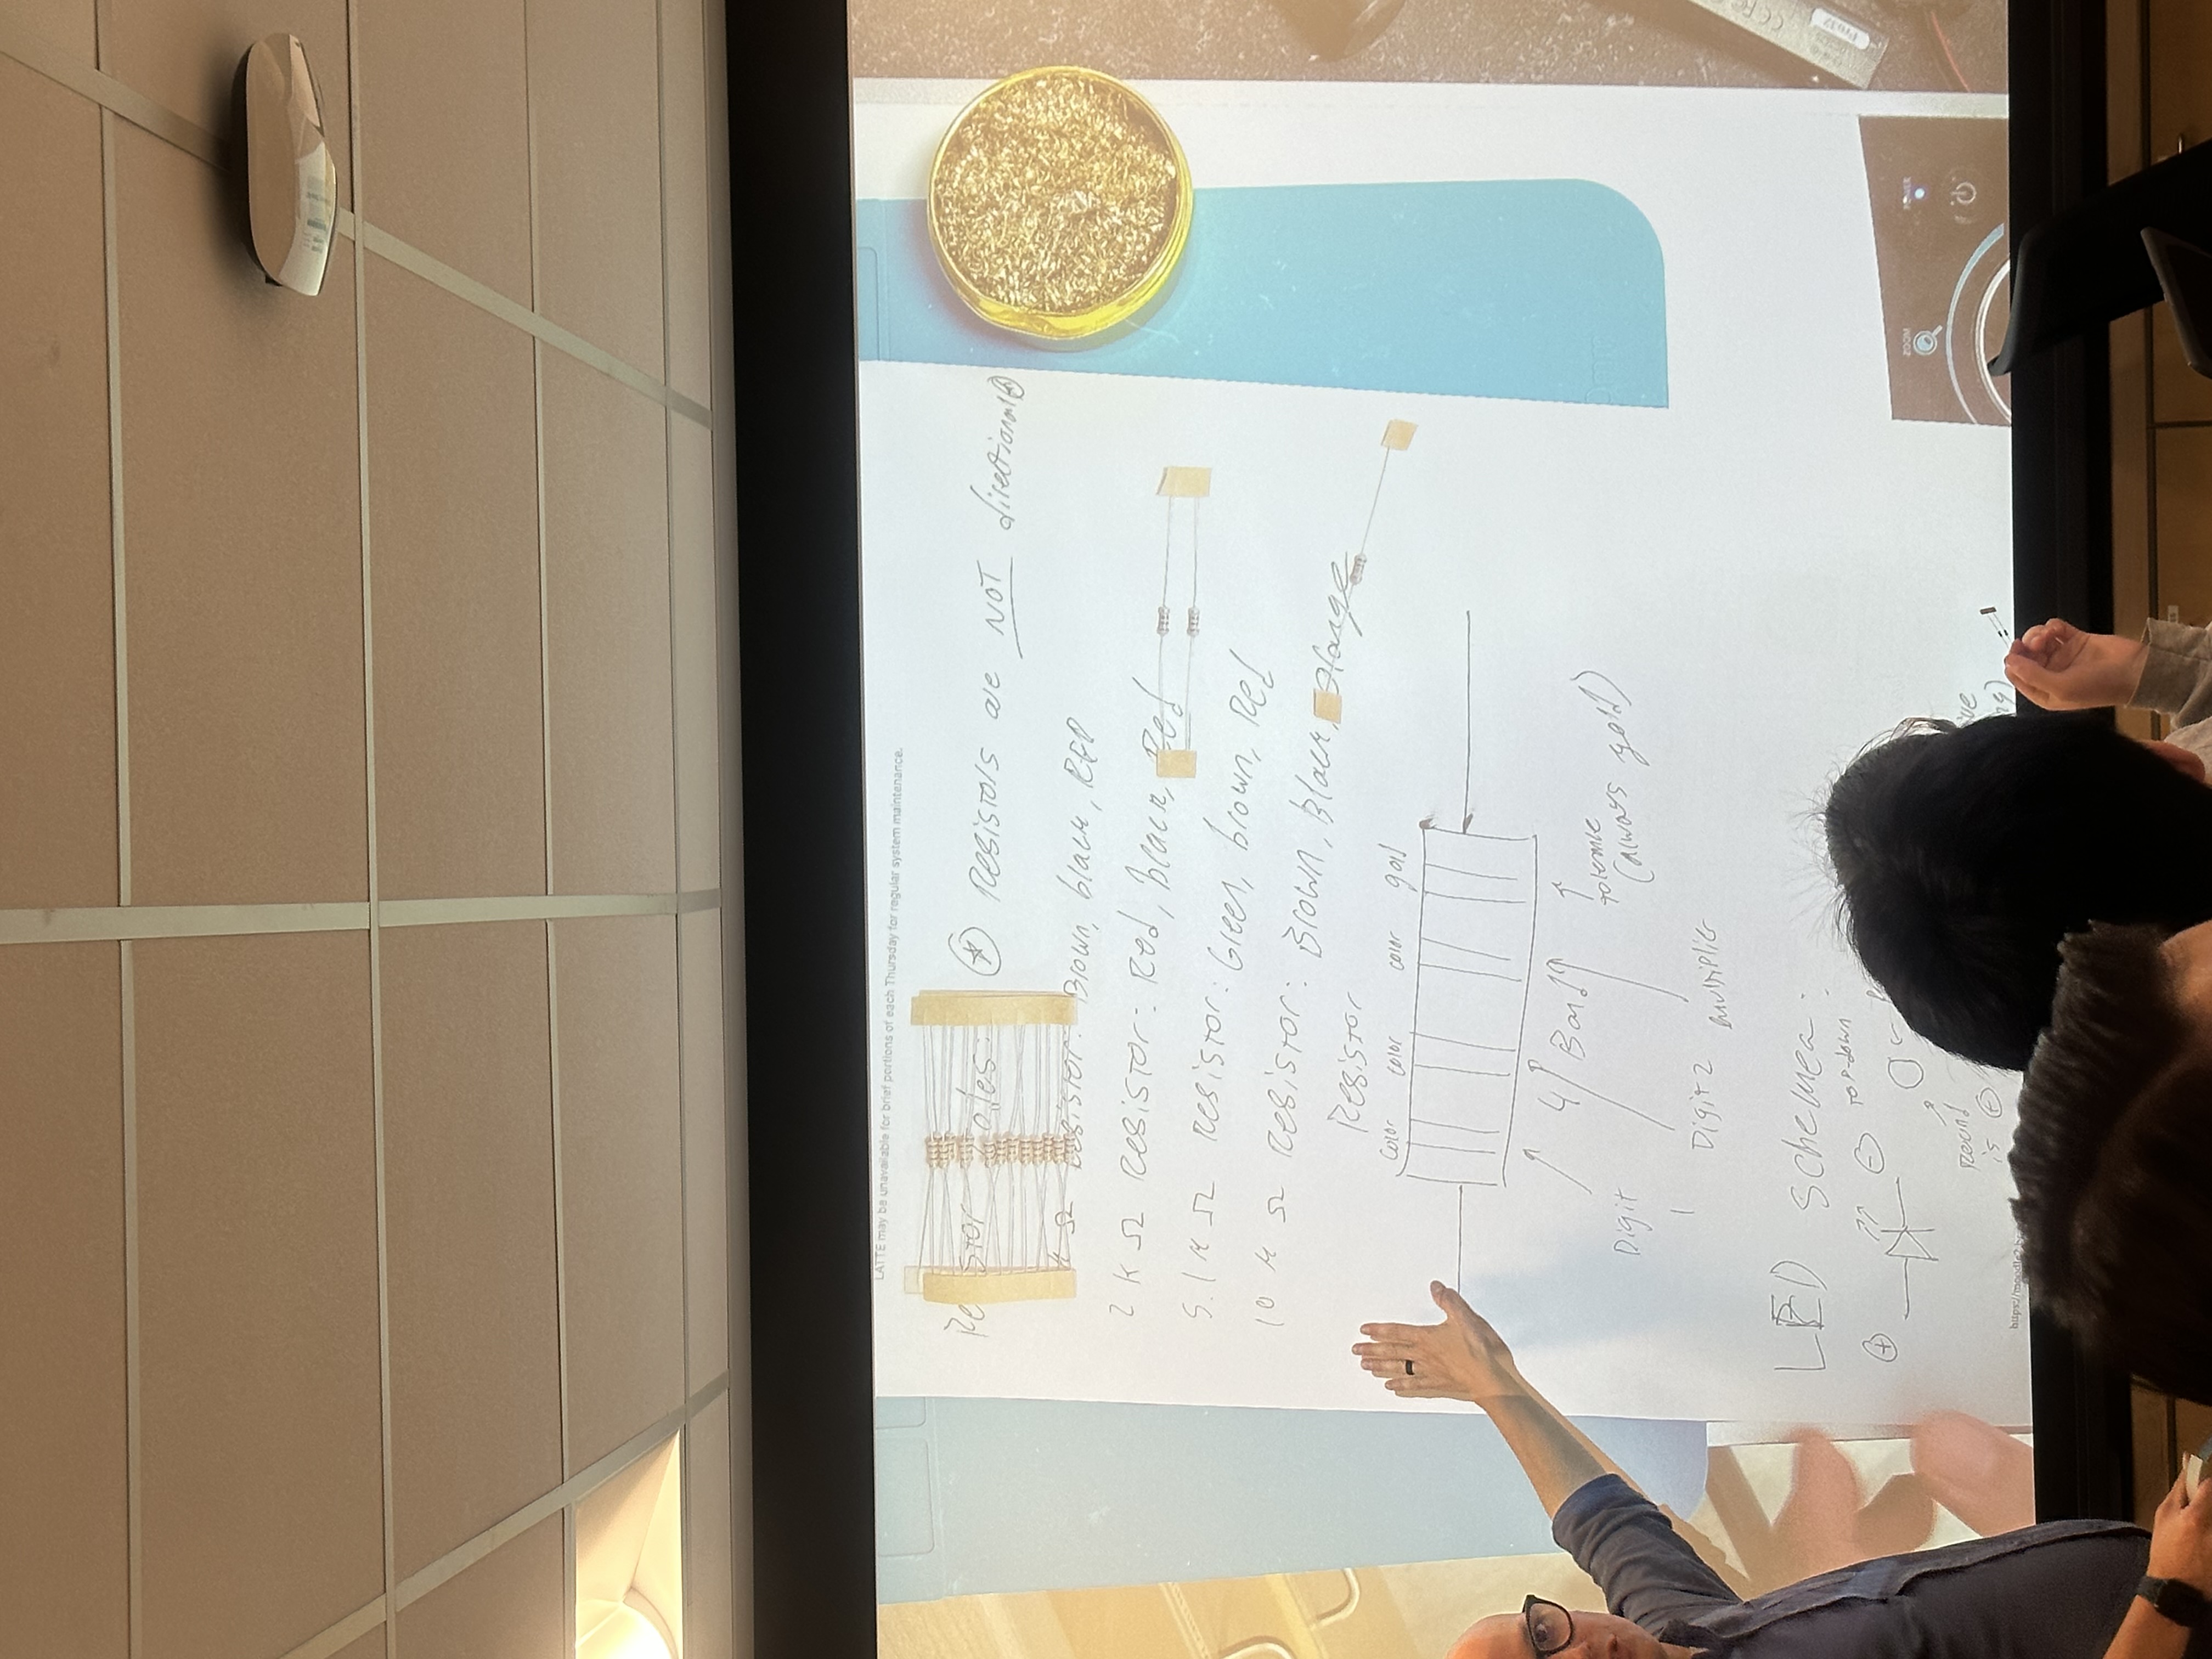 LATTE may be unavailable for brief portions of each Thursday for regular system maintenance.
Resistor Notes: * Resistors are NOT directional *
k Ω Resistor: Brown, black, RED
2 K Ω Resistor: Red, black, Red
5.1 K Ω Resistor: Green, brown, Red
10 K Ω Resistor: Brown, Black, Orange
Resistor
color color color gold
4 Band
tolerance
(always gold)
Digit
1
Digit 2 multiplier
LED schemea:
+ - TOP-down
Round
is +
https://moodle2.br
ZOOM POWER